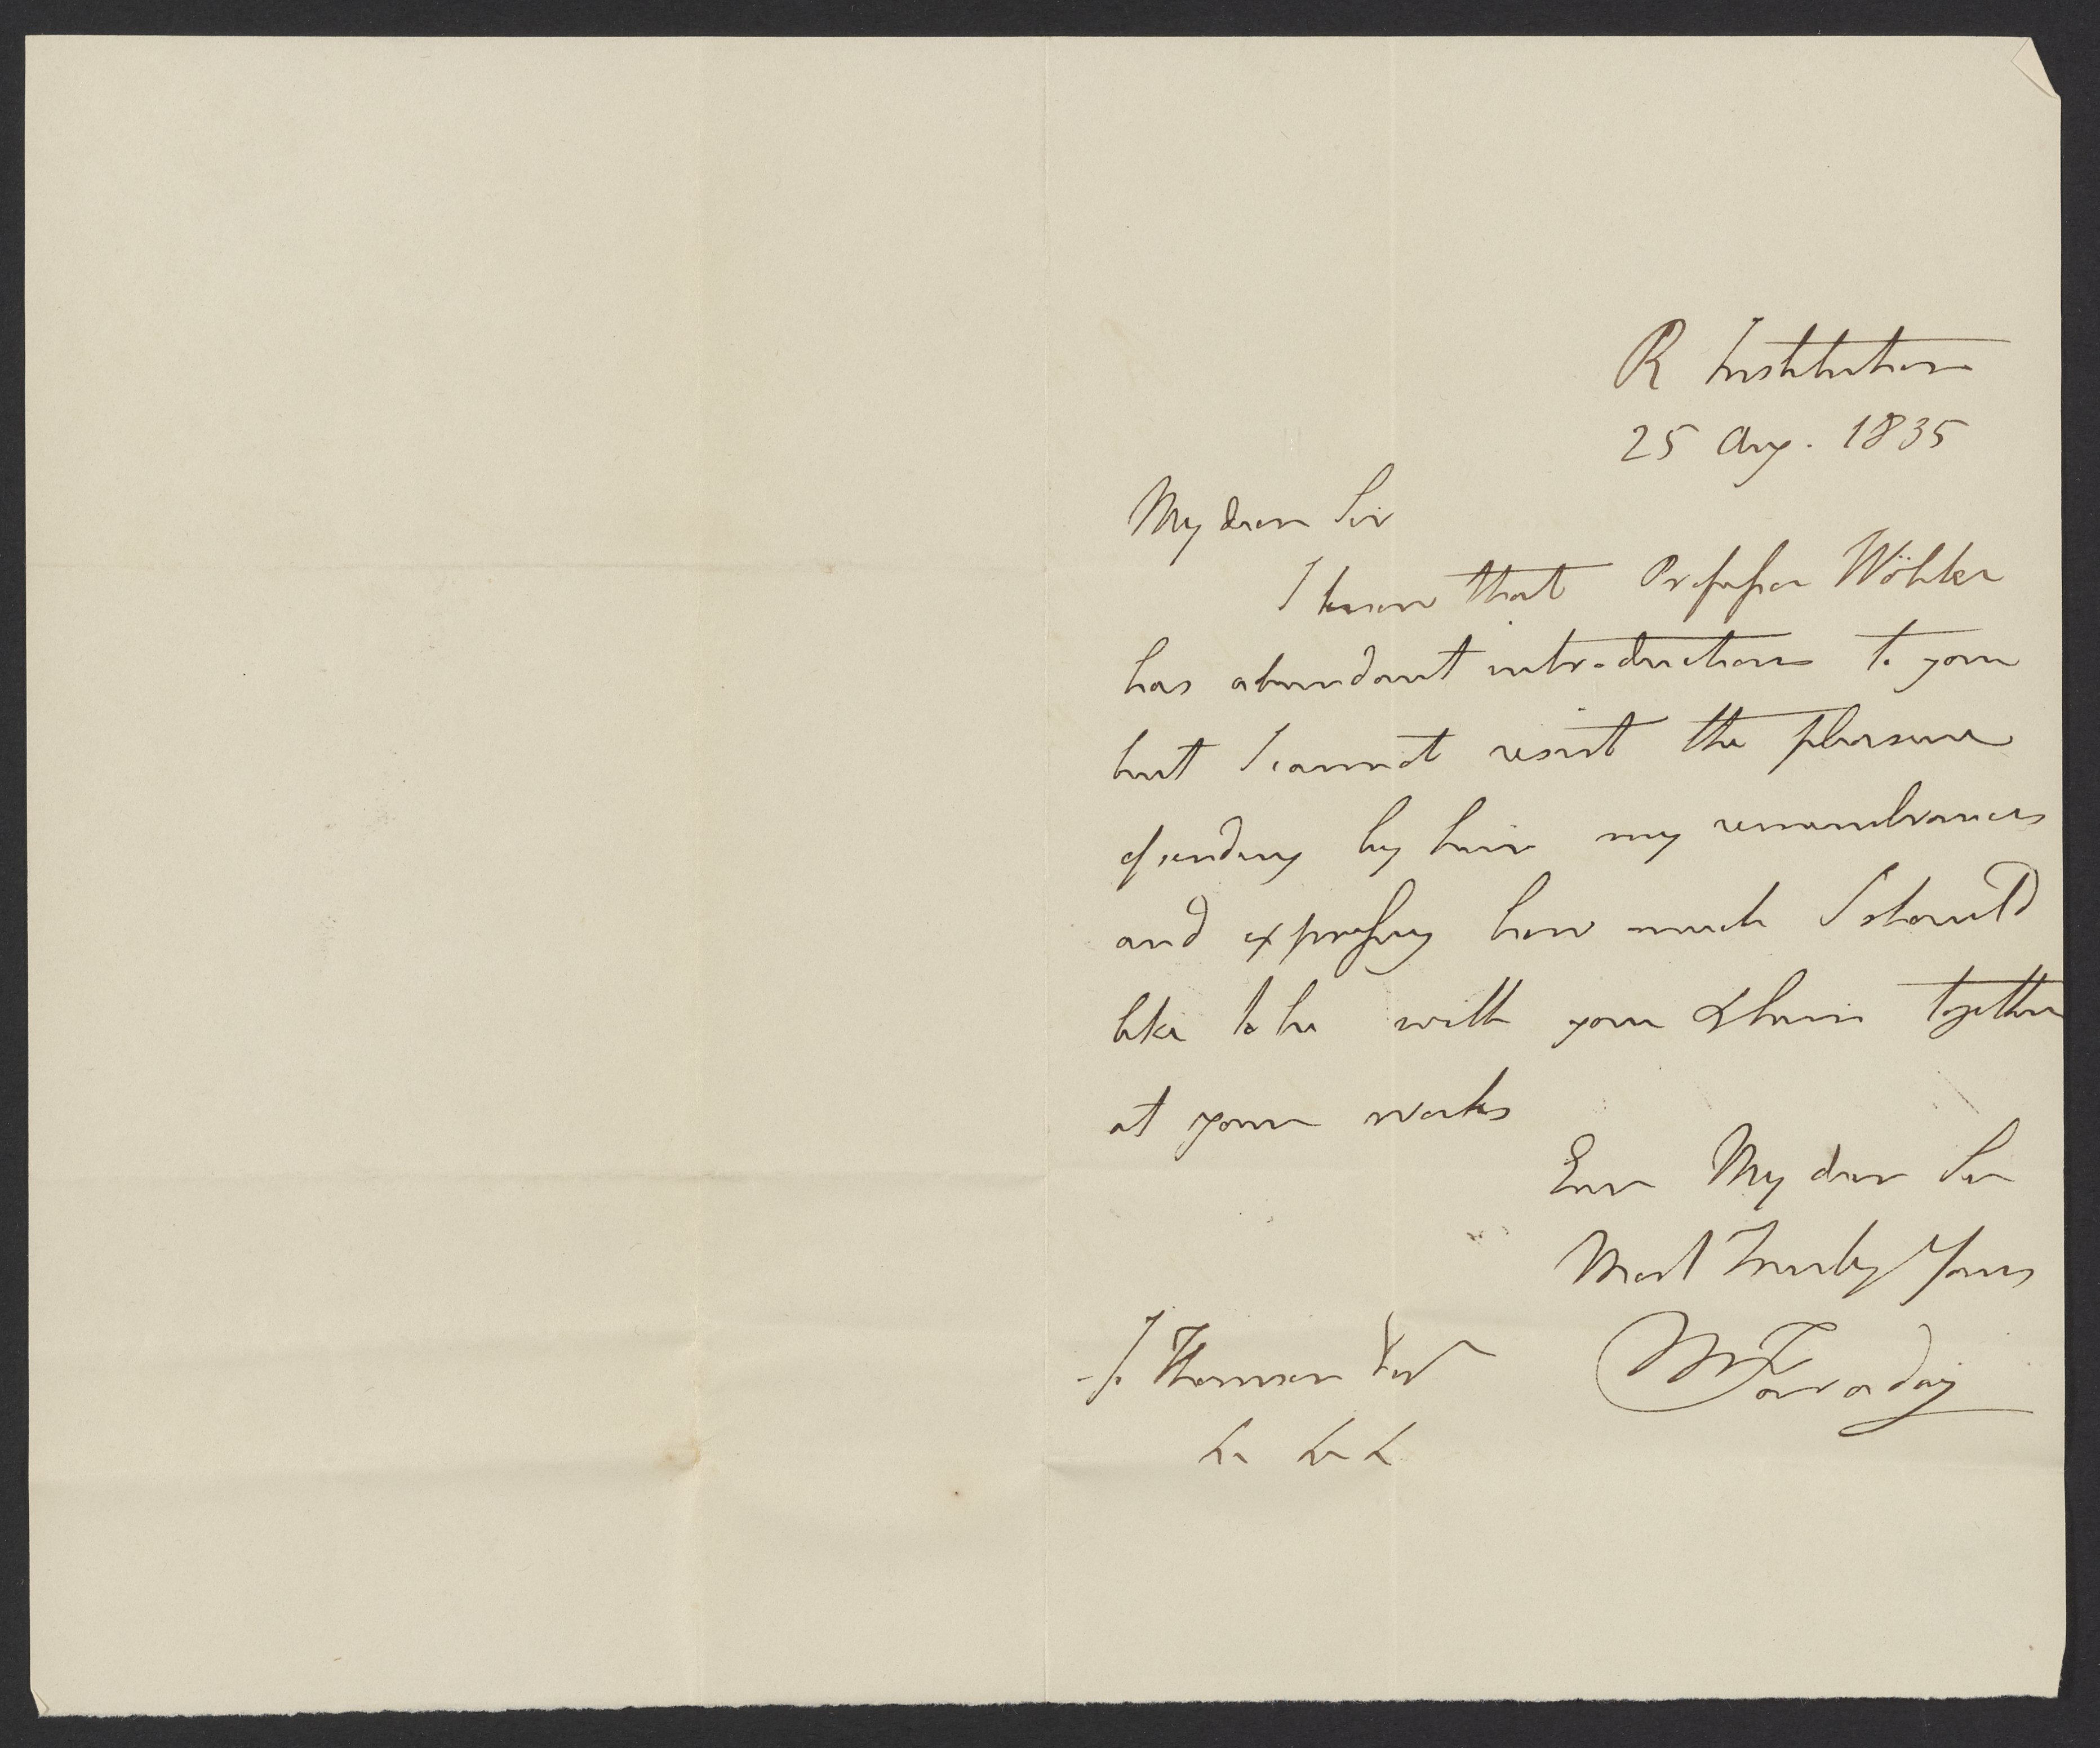 R Institution
25 Aug. 1835
My dear Sir
I know that Professor Wöhler
has abundant introductions to you
but I cannot resist the pleasure
of sending by him my remembrances
and expressing how much I should
like to be with you & him together
at your works
Ever My dear Sir
Most Truly Yours
M Faraday
J. Thomson Esq
&c &c &c